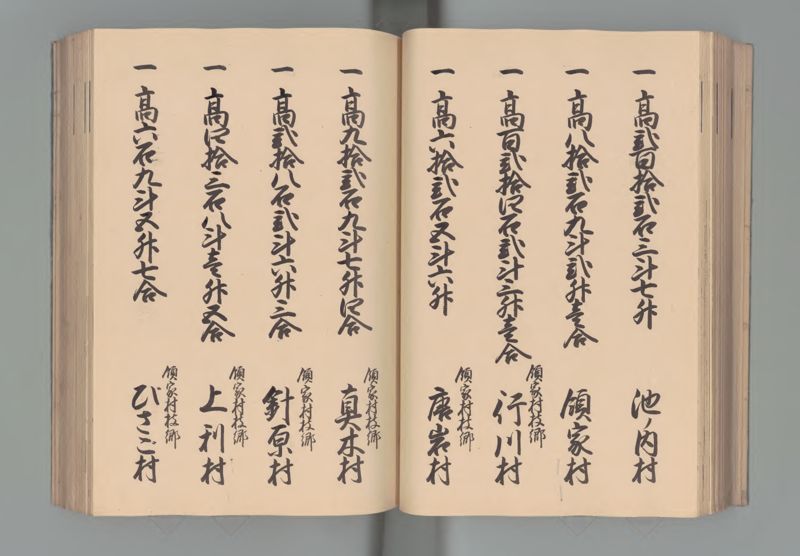 一高弐百拾弐石三斗七升
池ノ内村
一高八拾弐石九斗弐升壱合
領家村
一高百弐拾四石弐斗三升壱合
領家村枝郷
行川村
一高六拾弐石五斗六升
領家村枝郷
唐岩村
一高九拾弐石九斗七升四合
領家村枝郷
真木村
一高弐拾八石弐斗六升三合
領家村枝郷
針原村
一高四拾三石八斗壱升五合
領家村枝郷
上利村
一高六石九斗五升七合
領家村枝郷
びさご村